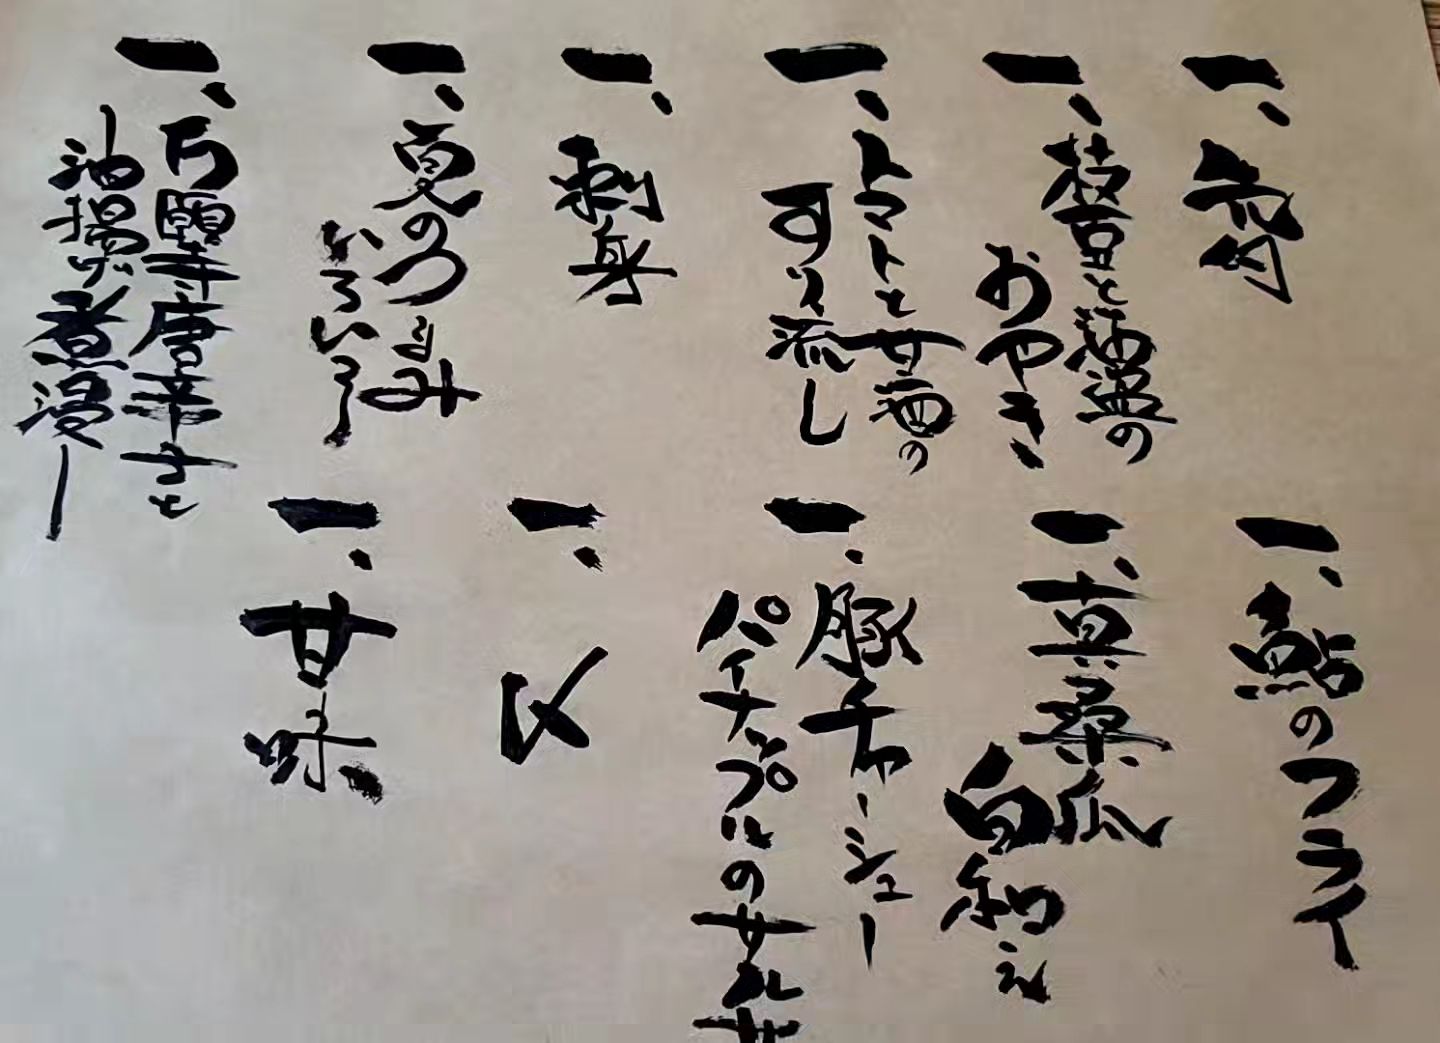 一、先付
一、枝豆と藻塩の
おやき
一、トマトと甘酒の
すり流し
一、刺身
一、夏のつまみ
いろいろ
一、万願寺唐辛子と
油揚げ煮浸し
一、鮎のフライ
一、真桑瓜
白和え
一、豚チャーシュー
パイナップルのサルサ
一、〆
一、甘味